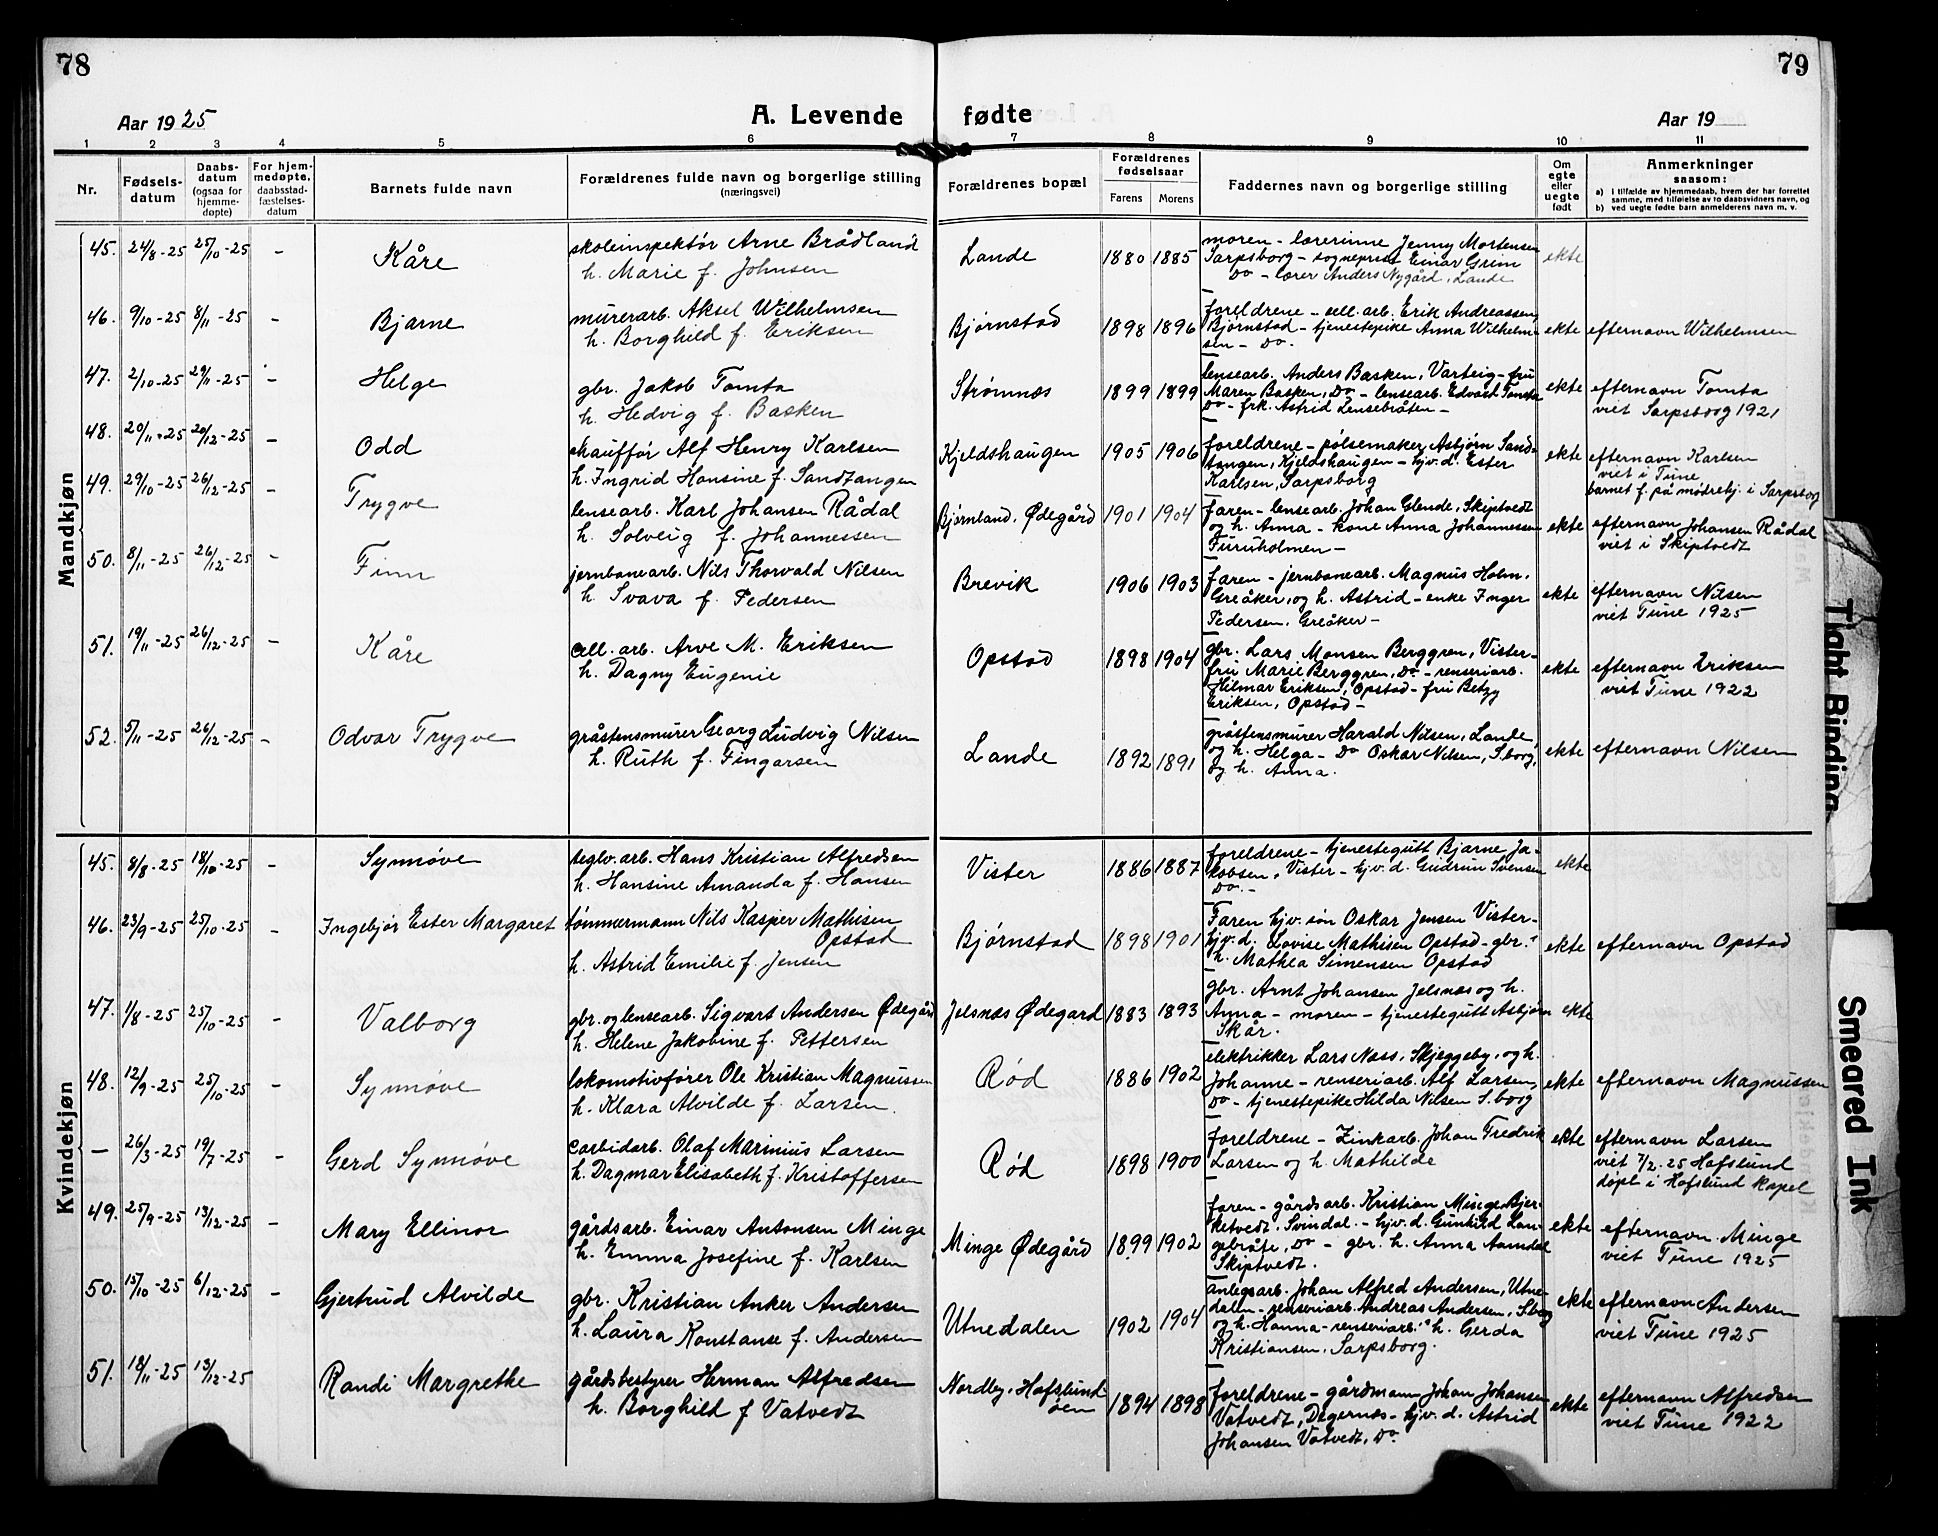 78
79
Aar 1925
A. Levende fødte
Aar 19
1 2 3 4 5 6 7 8 9 10 11
Nr.
Fødsels-
datum
Daabs-
datum
(ogsaa for
hjemme-
døpte)
For hjem-
medøpte,
daabsstad-
fæstelses-
datum
Barnets fulde navn
Forældrenes fulde navn og borgerlige stilling
(næringsvei)
Forældrenes bopæl
Forældrenes
fødselsaar
Farens Morens
Faddernes navn og borgerlige stilling
Om
egte
eller
uegte
født
Anmerkninger
saasom:
a) I tilfælde av hjemmedaab, hvem der har forrettet
samme, med tilføielse av to daabsvidners navn, og
b) ved uegte fødte barn anmelderens navn m. v.
Mandkjøn
45. 24/8-25 25/10-25 - Kåre
skoleinspektør Arne Brådland
h. Marie f. Johnsen
Lande 1880 1885
moren - lærerinne Jenny Mortensen
Sarpsborg - sogneprest Einar Grim
Do - lærer Anders Nygård, Lande
ekte
46. 9/10-25 8/11-25 - Bjarne
murerarb. Aksel Wilhelmsen
h. Borghild f. Eriksen
Bjørnstad 1898 1896
foreldrene - cell. arb. Erik Andreassen,
Bjørnstad - tjenestepike Anna Wilhelm-
sen - Do.
ekte efternavn Wilhelmsen
47. 2/10-25 29/11-25 - Helge
gbr. Jakob Tomta
h. Hedvig f. Basken
Strømnæs 1899 1899
lensearb. Anders Basken, Varteig - fru
Maren Basken, Do - lensearb. Edvard Tomta
Do - frk. Astrid Lensebråten -
ekte efternavn Tomta
viet Sarpsborg 1921
48. 20/11-25 20/12-25 - Odd
chauffør Alf Henry Karlsen
h. Ingrid Hansine f. Sandtangen
Kjeldshaugen 1905 1906
foreldrene - pølsemaker Asbjørn Sand-
tangen, Kjeldshaugen - hjv. d. Ester
Karlsen, Sarpsborg
ekte efternavn Karlsen
viet i Tune
barnet f. på mødrehj. i Sarpsborg
49. 29/10-25 26/12-25 - Trygve
lensearb. Karl Johansen Rådal
h. Solveig f. Johannessen
Bjørnland, Ødegård 1901 1904
faren - lensearb. Johan Glende, Skiptvedt
og h. Anna - kone Anna Johannessen
Furuholmen -
ekte efternavn Johansen Rådal
viet i Skiptvedt
50. 8/11-25 26/12-25 - Finn
jernbanearb. Nils Thorvald Nilsen
h. Svava f. Pedersen
Brevik 1906 1903
faren - jernbanearb. Magnus Holm,
Greåker, og h. Astrid - enke Inger
Pedersen, Greåker -
ekte efternavn Nilsen
viet Tune 1925
51. 19/11-25 26/12-25 - Kåre
cell. arb. Arve M. Eriksen
h. Dagny Eugenie
Opstad 1898 1904
gbr. Lars Monsen Berggren, Vister-
fru Marie Berggren, Do - renseriarb.
Hilmar Eriksen, Opstad - fru Betzy
Eriksen, Opstad -
ekte efternavn Eriksen
viet Tune 1922
52. 5/11-25 26/12-25 - Odvar Trygve
gråstensmurer Georg Ludvig Nilsen
h. Ruth f. Fingarsen
Lande 1892 1891
gråstensmurer Harald Nilsen, Lande
og h. Helga - Do Oskar Nilsen, S.borg,
og h. Anna.
ekte efternavn Nilsen
Kvindekjøn
45. 8/8-25 18/10-25 - Synnøve
teglv. arb. Hans Kristian Alfredsen
h. Hansine Amanda f. Hansen
Vister 1886 1887
foreldrene - tjenestegutt Bjarne Ja-
kobsen, Vister - hjv. d. Gudrun Svensen
Do. -
ekte
46. 23/9-25 25/10-25 - Ingebjør Ester Margaret
tømmermann Nils Kasper Mathisen
Opstad
h. Astrid Emilie f. Jensen
Bjørnstad 1898 1901
Faren hjv. søn Oskar Jensen Vister-
hjv. d. Lovise Mathisen Opstad - gbr.
h. Mathea Simensen Opstad
ekte efternavn Opstad
47. 1/8-25 25/10-25 - Valborg
gbr. og lensearb. Sigvart Andersen Ødegård
h. Helene Jakobine f. Pettersen
Jelsnæs Ødegard 1883 1893
gbr. Arnt Johansen Jelsnæs og h.
Anna - moren - tjenestegutt Asbjørn
Skår.
ekte
48. 12/9-25 25/10-25 - Synnøve
lokomotivfører Ole Kristian Magnussen
h. Klara Alvilde f. Larsen.
Rød 1886 1902
elektrikker Lars Næss, Skjeggeby, og h.
Johanne - renseriarb. Alf Larsen,
Do - tjenestepike Hilda Nilsen S.borg
ekte efternavn Magnussen
- 26/3-25 19/7-25 - Gerd Synnøve
Carbidarb. Olaf Marinius Larsen
h. Dagmar Elisabeth f. Kristoffersen
Rød 1898 1900
foreldrene - Zinkarb. Johan Fredrik
Larsen og h. Mathilde
ekte efternavn Larsen
viet 7/2-25 Hafslund
døpt i Hafslund kapel
49. 25/9-25 13/12-25 - Mary Ellinor
gårdsarb. Einar Antonsen Minge
h. Emma Josefine f. Karlsen
Minge Ødegård 1899 1902
faren - gårdsarb. Kristian Minge, Bjer-
ketvedt, Svindal - hjv. d. Gunhild Lan-
gebråte, Do - gbr. h. Anna Aamdal
Skiptvedt.
ekte efternavn Minge
viet Tune 1925
50. 15/10-25 6/12-25 - Gjertrud Alvilde
gbr. Kristian Anker Andersen
h. Laura Konstanse f. Andersen
Utnedalen 1902 1904
anlegsarb. Johan Alfred Andersen, Utne-
dalen - renseriarb. Andreas Andersen, S.borg
og h. Hanna - renseriarb. h. Gerda
Kristiansen, Sarpsborg.
ekte efternavn Andersen
viet Tune 1925
51. 18/11-25 13/12-25 Randi Margrethe
gårdsbestyrer Herman Alfredsen
h. Borghild f Vatvedt
Nordby, Hafslund
øen
1894 1898
foreldrene - gårdmann Johan Johansen
Vatvedt, Degernæs - hjv. d. Astrid
Johansen Vatvedt, Do.
ekte efternavn Alfredsen
viet Tune 1922
Tight Binding
Smeared Ink